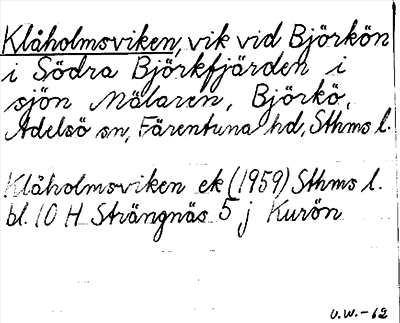 Klåholmsviken, vik vid Björkön
i Södra Björkfjärden i
sjön Mälaren, Björkö,
Adelsö sn, Färentuna hd, Sthms l.
Klåholmsviken ek (1959) Sthms l.
bl. 10 H Strängnäs 5 j Kurön
U.W.-62